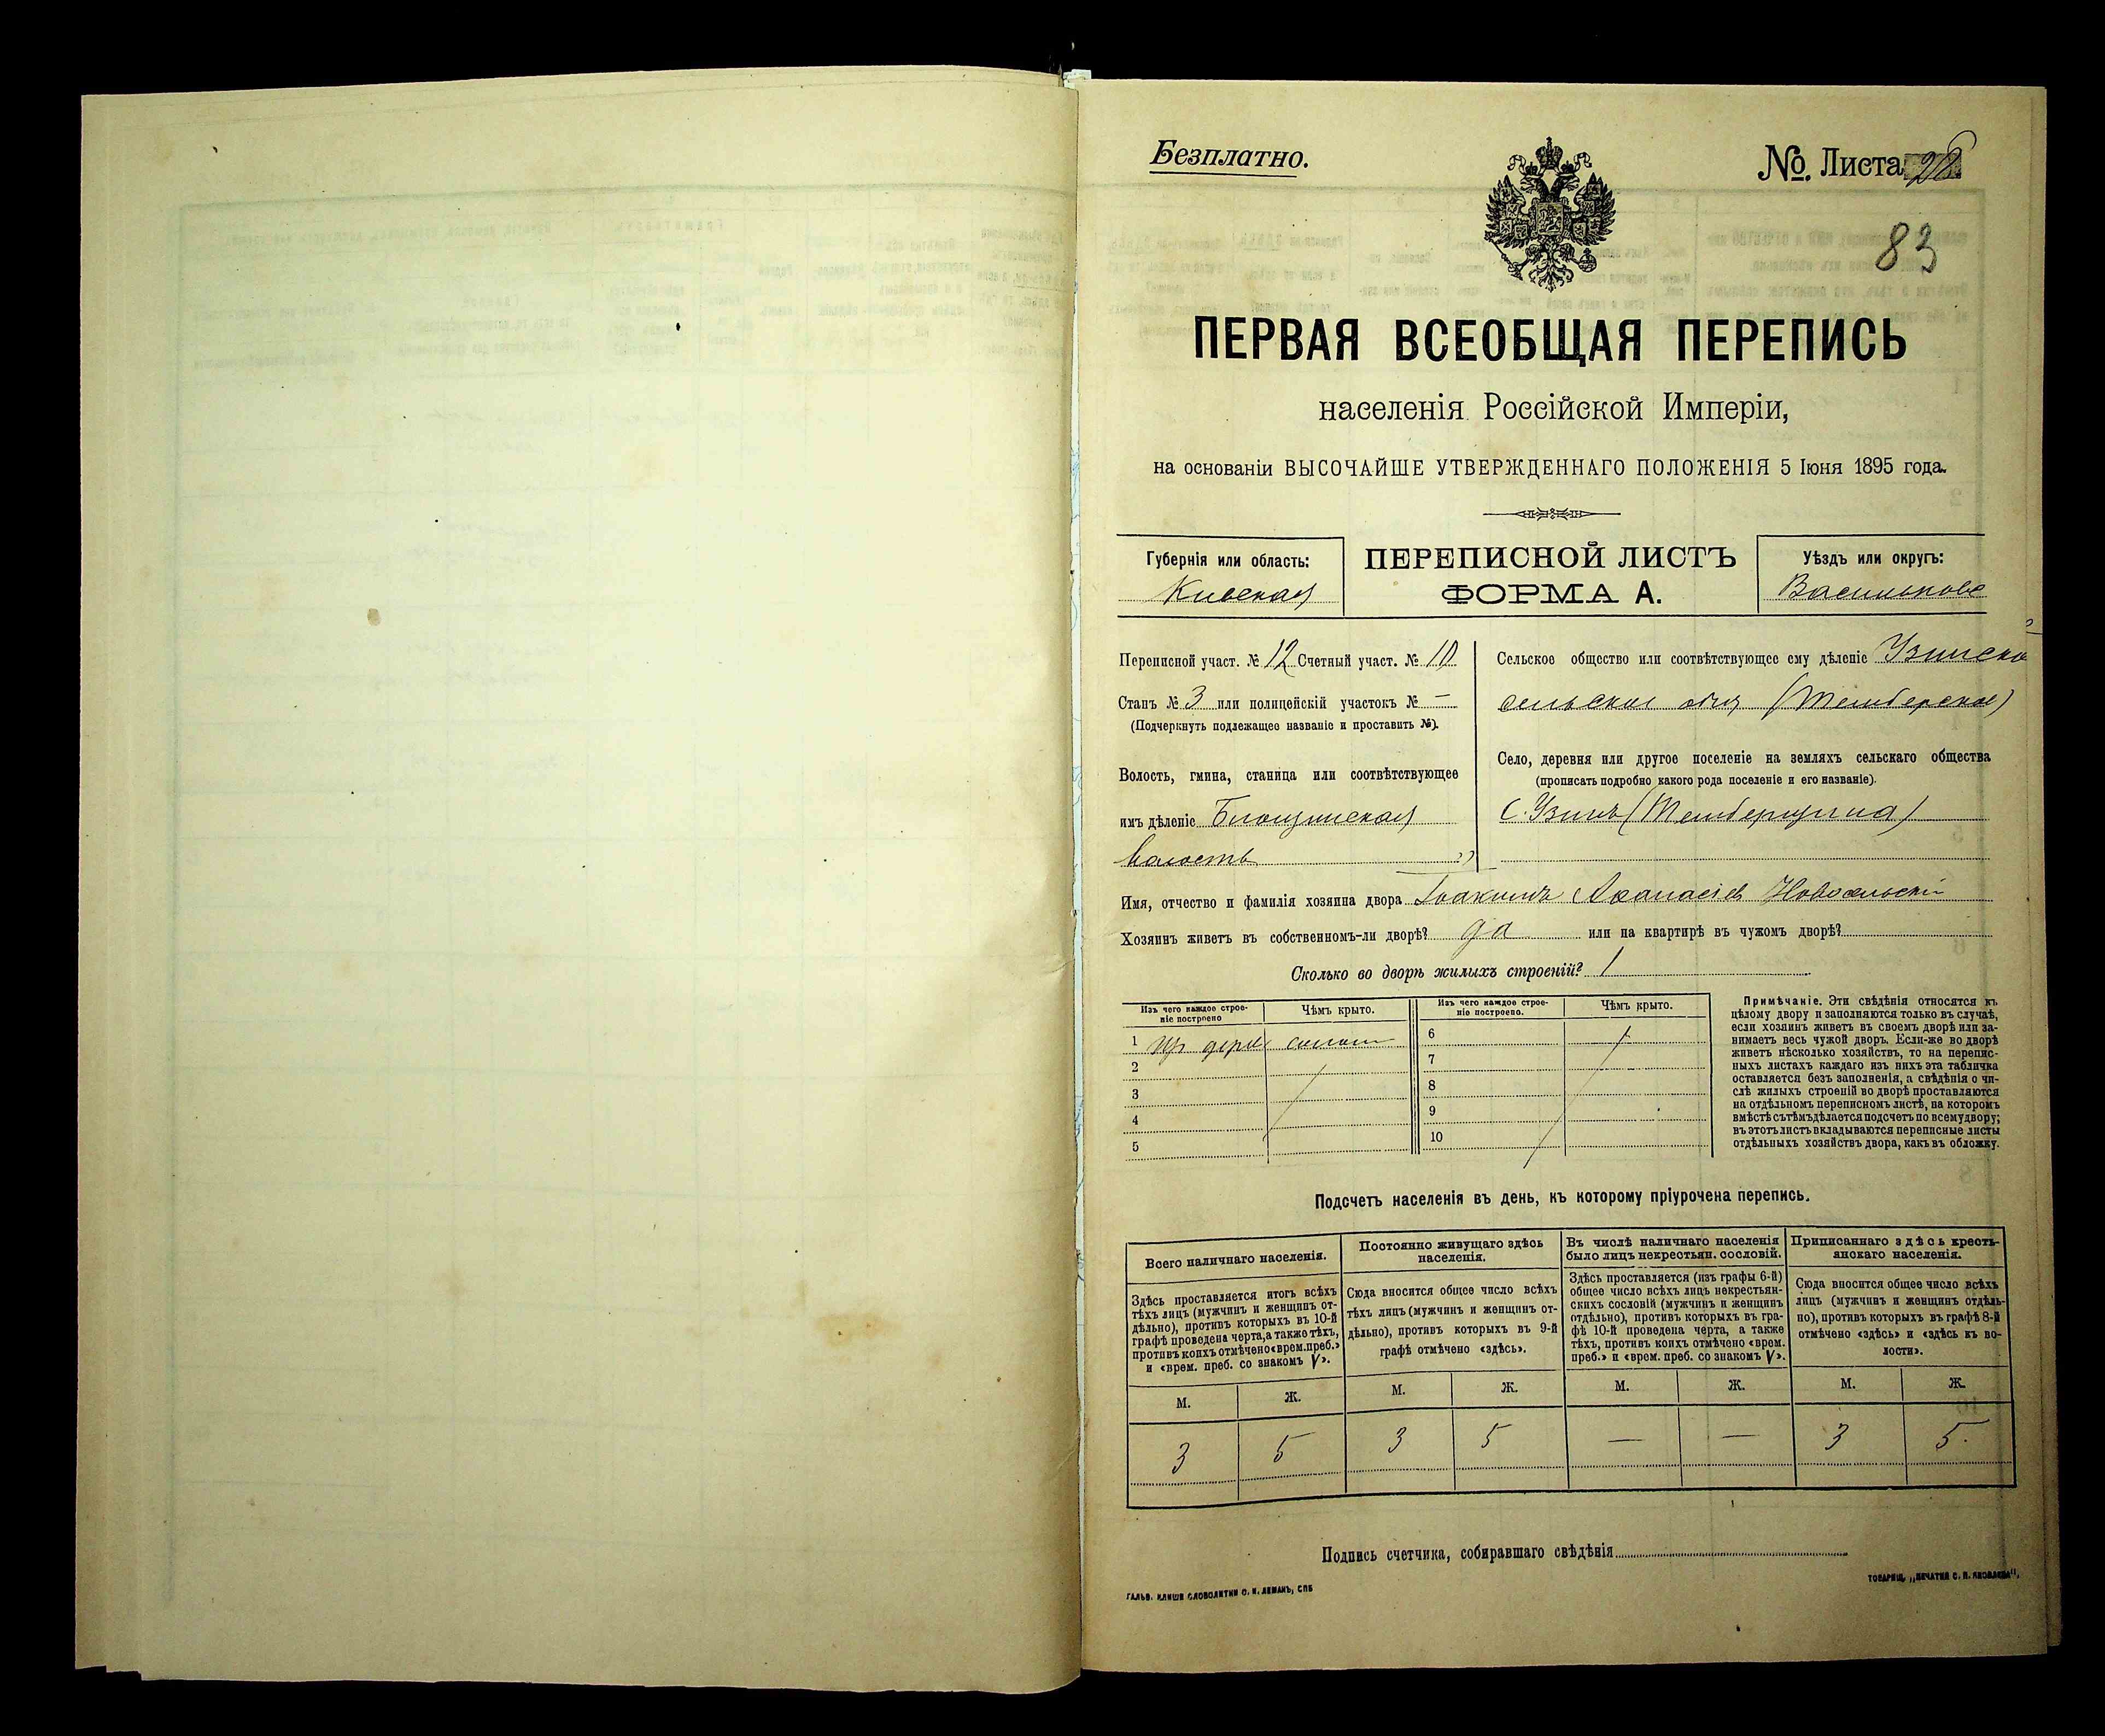 Безплатно.
№. Листа 28
83
ПЕРВАЯ ВСЕОБЩАЯ ПЕРЕПИСЬ
населенія Россійской Имперіи,
на основаніи ВЫСОЧАЙШЕ УТВЕРЖДЕННАГО ПОЛОЖЕНІЯ 5 Іюня 1895 года.
Губернія или область:
Киевская
ПЕРЕПИСНОЙ ЛИСТЪ
ФОРМА А.
Уѣздъ или округъ:
Васильковс
Переписной участ. № 12 Счетный участ. № 10
Станъ № 3 или полицейскій участокъ № —
(Подчеркнуть подлежащее названіе и проставить №).
Волость, гмина, станица или соотвѣтствующее
имъ дѣленіе
волость
Сельское общество или соотвѣтствующее ему дѣленіе Узинско
сельское общ (Темберское)
Село, деревня или другое поселеніе на земляхъ сельскаго общества
(прописать подробно какого рода поселеніе и его названіе).
С. Узинъ (Темберщина)
Имя, отчество и фамилія хозяина двора Іоакимъ Афанасіев Новосельскій
Хозяинъ живетъ въ собственномъ-ли дворѣ? да или на квартирѣ въ чужомъ дворѣ?
Сколько во дворѣ жилыхъ строеній? 1
Изъ чего каждое строе-
ніе построено
Чѣмъ крыто.
Изъ чего каждое строе-
ніе построено.
Чѣмъ крыто.
1 дерев солом
2
3
4
5
6
7
8
9
10
Примѣчаніе. Эти свѣдѣнія относятся къ
цѣлому двору и заполняются только въ случаѣ,
если хозяинъ живетъ въ своемъ дворѣ или за-
нимаетъ весь чужой дворъ. Если-же во дворѣ
живетъ нѣсколько хозяйствъ, то на перепис-
ныхъ листахъ каждаго изъ нихъ эта табличка
оставляется безъ заполненія, а свѣдѣнія о чи-
слѣ жилыхъ строеній во дворѣ проставляются
на отдѣльномъ переписномъ листѣ, на которомъ
вмѣстѣ съ тѣмъ дѣлается подсчетъ по всему двору;
въ этотъ листъ вкладываются переписные листы
отдѣльныхъ хозяйствъ двора, какъ въ обложку.
Подсчетъ населенія въ день, къ которому пріурочена перепись.
Всего наличнаго населенія.
Здѣсь проставляется итогъ всѣхъ
тѣхъ лицъ (мужчинъ и женщинъ от-
дѣльно), противъ которыхъ въ 10-й
графѣ проведена черта, а также тѣхъ,
противъ коихъ отмѣчено «врем. преб.»
и «врем. преб. со знакомъ V».
Постоянно живущаго здѣсь
населенія.
Сюда вносится общее число всѣхъ
тѣхъ лицъ (мужчинъ и женщинъ от-
дѣльно), противъ которыхъ въ 9-й
графѣ отмѣчено «здѣсь».
Въ числѣ наличнаго населенія
было лицъ некрестьян. сословій.
Здѣсь проставляется (изъ графы 6-й)
общее число всѣхъ лицъ некрестьян-
скихъ сословій (мужчинъ и женщинъ
отдѣльно), противъ которыхъ въ гра-
фѣ 10-й проведена черта, а также
тѣхъ, противъ коихъ отмѣчено «врем.
преб.» и «врем. преб. со знакомъ V».
Приписаннаго здѣсь кресть-
янскаго населенія.
Сюда вносится общее число всѣхъ
лицъ (мужчинъ и женщинъ отдѣль-
но), противъ которыхъ въ графѣ 8-й
отмѣчено «здѣсь» и «здѣсь къ во-
лости».
М. Ж. М. Ж. М. Ж. М. Ж.
3 5 3 5 — — 3 5.
Подпись счетчика, собиравшаго свѣдѣнія
ГАЛЬВ. КЛИШЕ СЛОВОЛИТНИ О. И. ЛЕМАНЪ, СПБ
ТОВАРИЩ. „ПЕЧАТНЯ С. П. ЯКОВЛЕВА“,